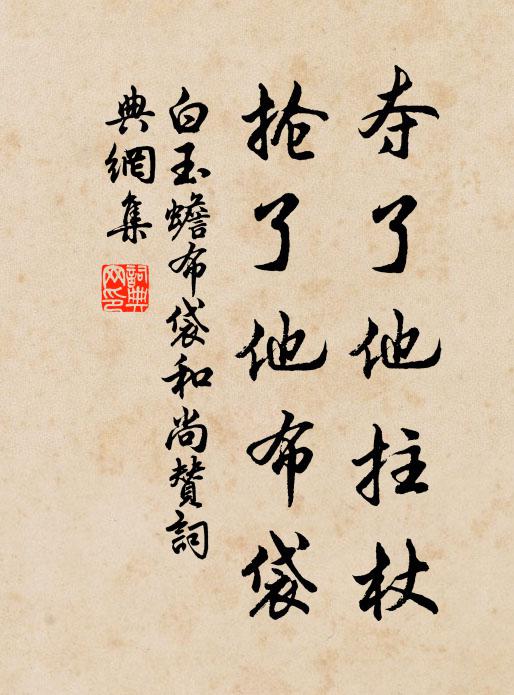 夺了他拄杖
抢了他布袋
白玉蟾布袋和尚赞詞
典網集
詞典网印